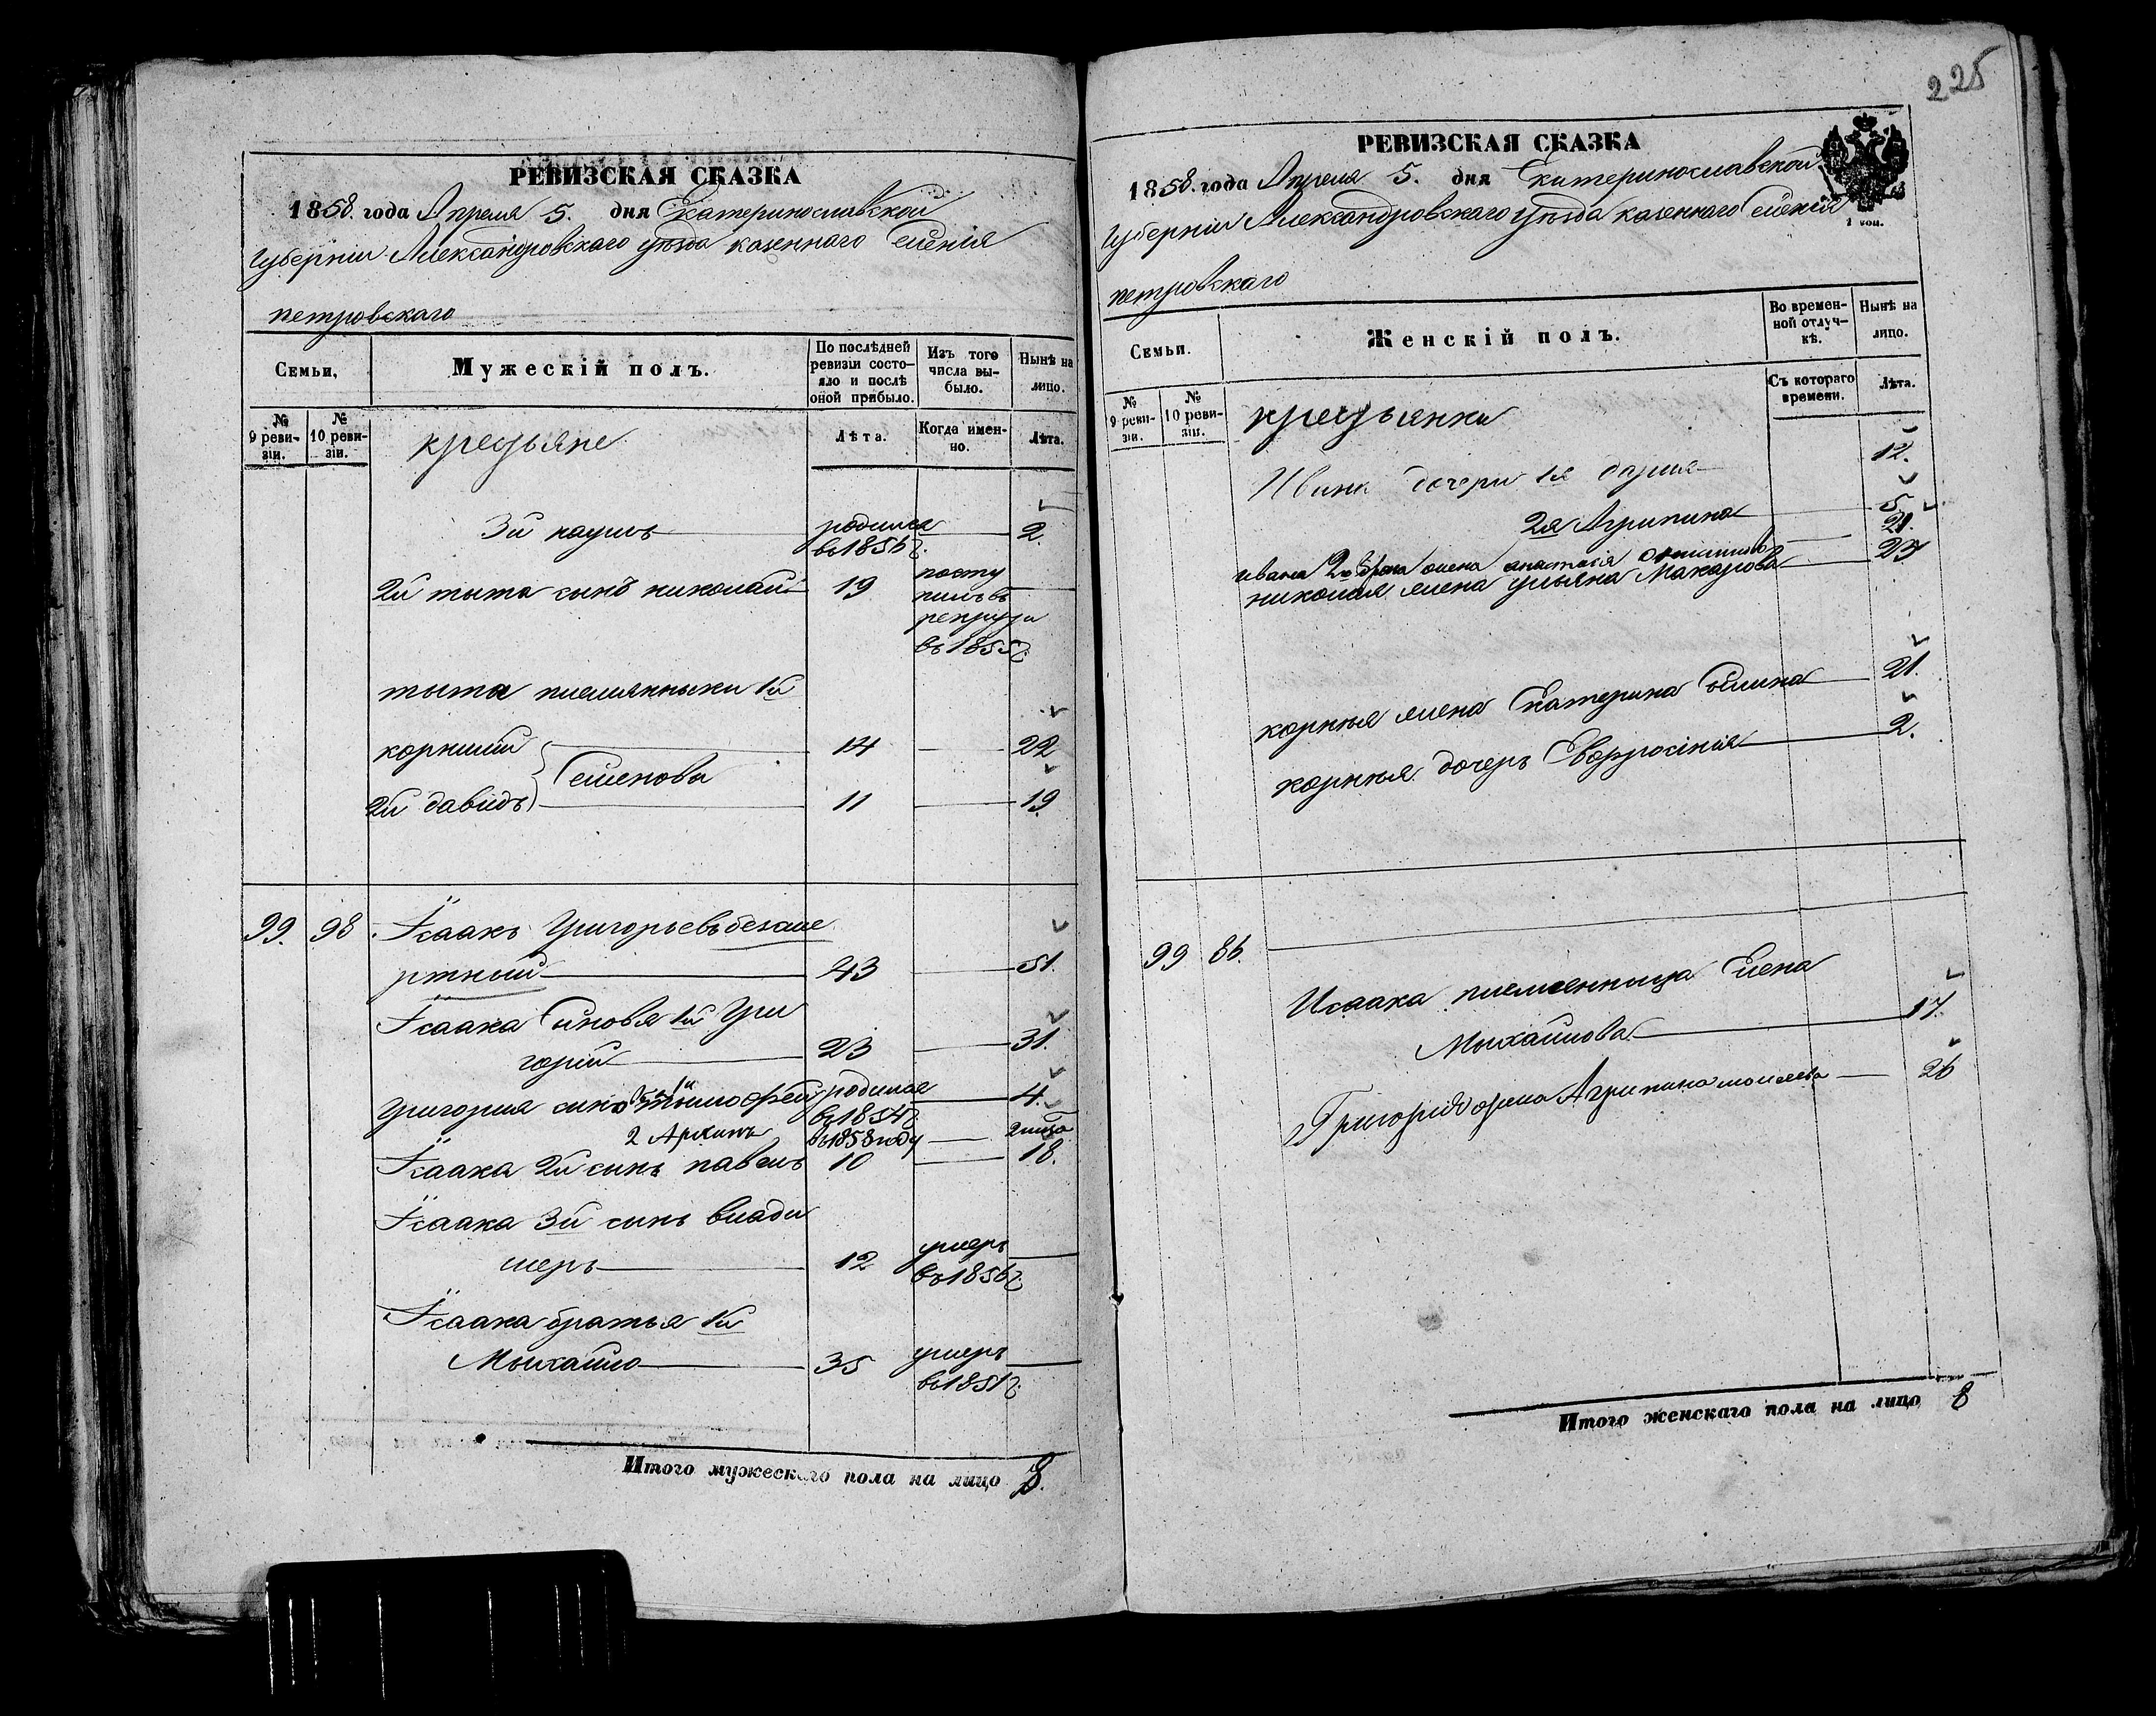 РЕВИЗСКАЯ СКАЗКА
1858. года Апреля 5. дня Екатеринославской
губерніи Александровскаго уѣзда казеннаго Селенія
петровскаго
Семьи,
Мужескій полъ.
По послѣдней ревизіи состояло и послѣ оной прибыло.
Изъ того числа выбыло.
Нынѣ на лицо.
№ 9 ревизіи.
№ 10 ревизіи.
крестьяне
Лѣта.
Когда именно.
Лѣта.
3й
родился въ 1856 г.
2.
2й тыта сынъ николай
19
поступилъ въ рекруты въ 1855 г.
тыта племянныки 1й
корнилий
14
22
Семенова
2й давидъ
11
19
99.
98
Ісаакъ Григорьевъ безсме
ртный
43
51.
Ісаака Сыновя 1й Гри
горій
23
31.
Григория сынъ тымофей
родился въ 1854 г.
4.
2
въ 1858 году
Ісаака 2й сынъ павелъ
10
18.
Ісаака 3й сынъ влади
меръ
12
умеръ въ 1856 г.
Ісаака братья 1й
Мыхайло
35
умеръ въ 1851 г.
Итого мужескаго пола на лицо 8.
225
РЕВИЗСКАЯ СКАЗКА
1858. года Апреля 5. дня Екатеринославской
губерніи Александровскаго уѣзда казеннаго Селенія
1 коп.
петровскаго
Семьи.
Женскій полъ.
Во временной отлучкѣ.
Нынѣ на лицо.
№ 9 ревизіи.
№ 10 ревизіи.
крестьянки
Съ котораго времени.
Лѣта.
Ивана дочери 1я дария
12.
2я Агрипина
5
ивана 2 жена анастасія
21.
николая жена ульяна Макарова
27
корния жена Екатерина
21.
корния дочерь Евфросінія
2.
99
86.
Исаака племенница Елена
Мыхайлова
17.
Григорія жена Агрипина моисеева
26
Итого женскаго пола на лицо 8